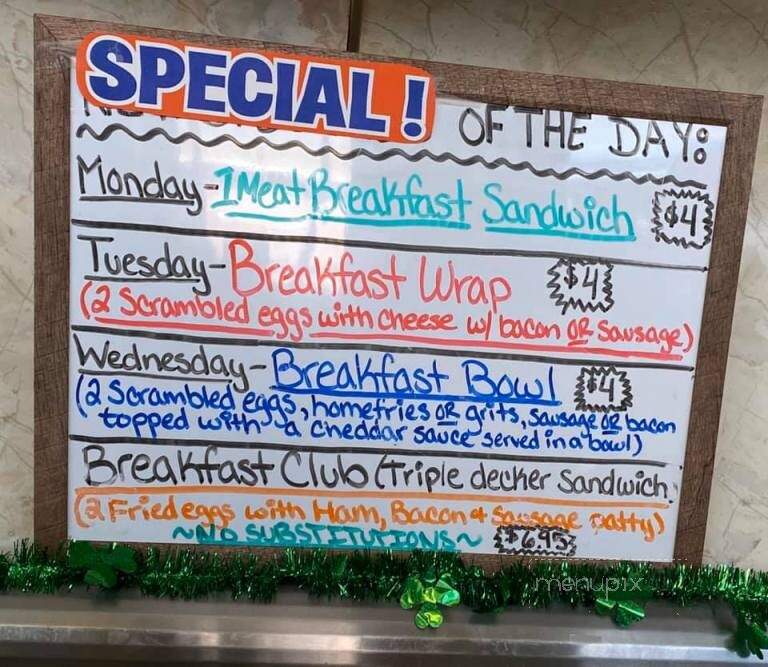 SPECIAL!
OF THE DAY:
Monday - 1 Meat Breakfast Sandwich $4
Tuesday - Breakfast Wrap $4
(2 Scrambled eggs with cheese w/ bacon OR Sausage)
Wednesday - Breakfast Bowl $4
(2 Scrambled eggs, homefries OR grits, sausage OR bacon
topped with a cheddar sauce served in a bowl)
Breakfast Club (Triple decker Sandwich)
(2 Fried eggs with Ham, Bacon & Sausage patty)
~NO SUBSTITUTIONS~ $6.95
menupix